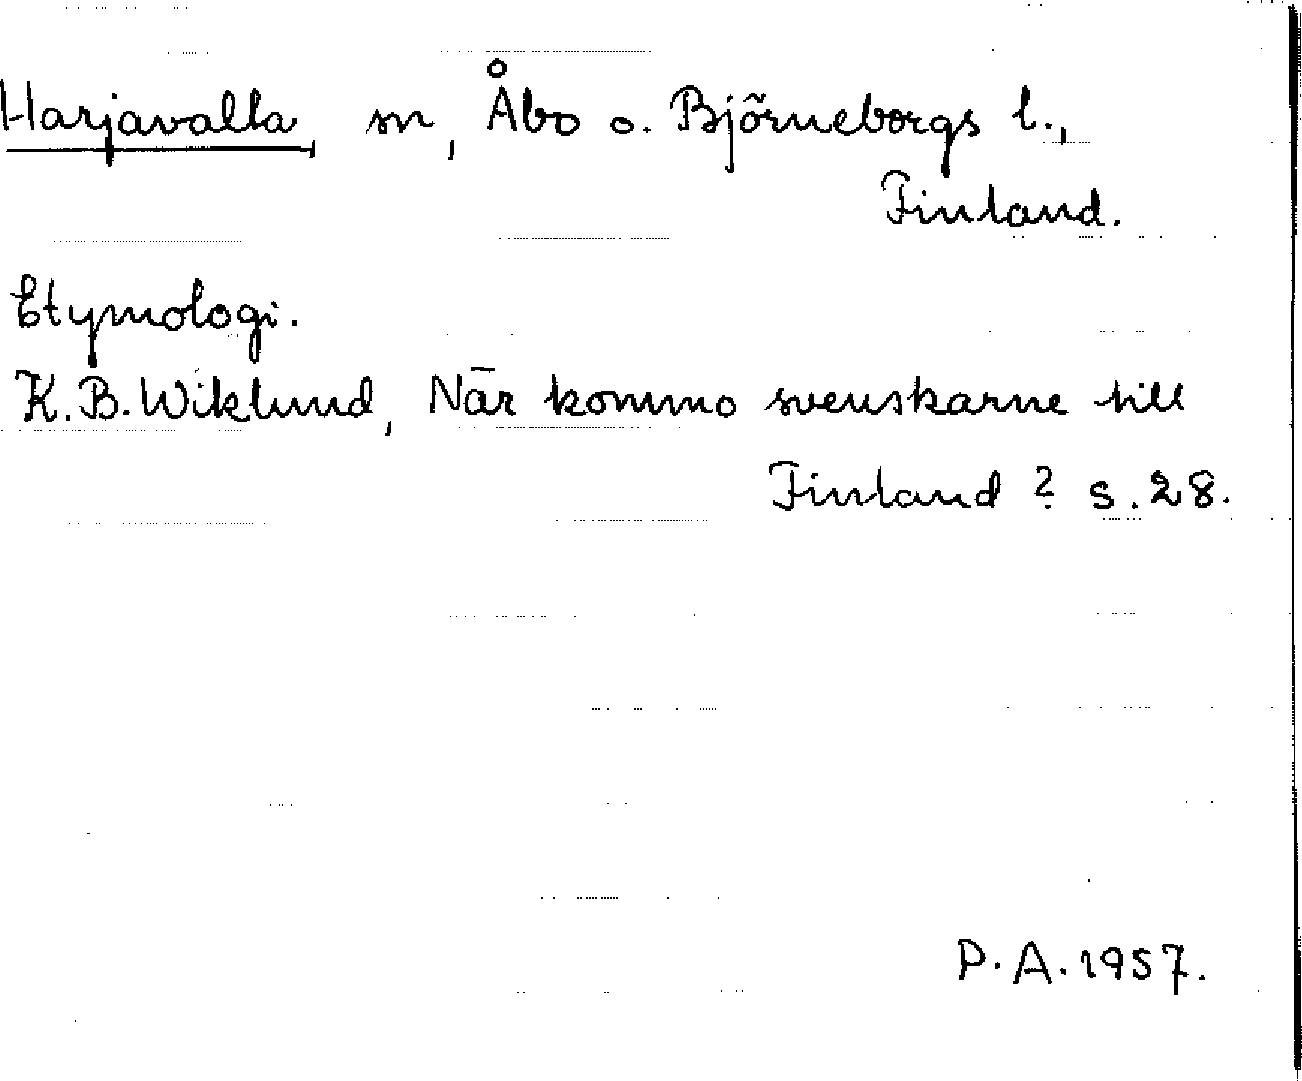 Harjavalta, sn, Åbo o. Björneborgs l.,
Finland.
Etymologi.
K.B. Wiklund, När kommo svenskarne till
Finland? s. 28.
P.A. 1957.